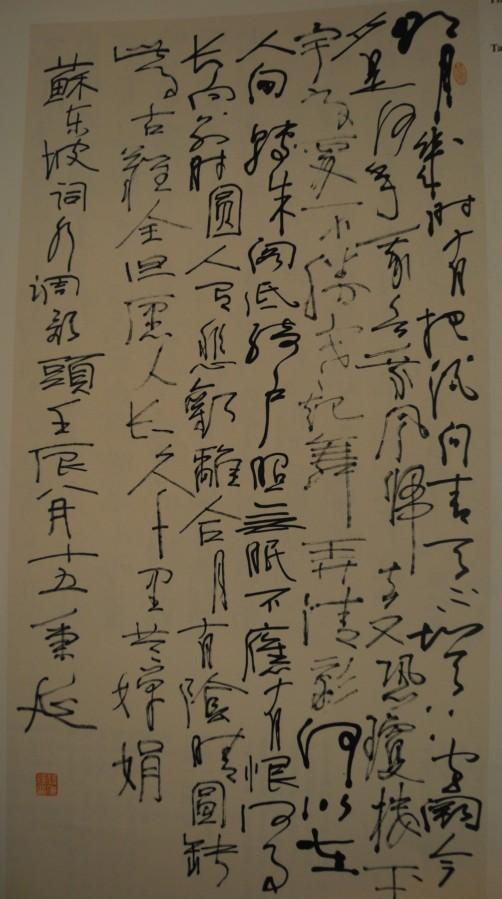 明月幾时有把酒问青天不知天上宫阙今
夕是何年我欲乘風歸去又恐瓊楼玉
宇高處不勝寒起舞弄清影何似在
人间轉朱阁低绮户照無眠不應有恨何事
长向别时圆人有悲歡離合月有陰晴圓缺
此事古難全但愿人长久千里共嬋娟
蘇东坡词水调歌頭壬辰八月十五